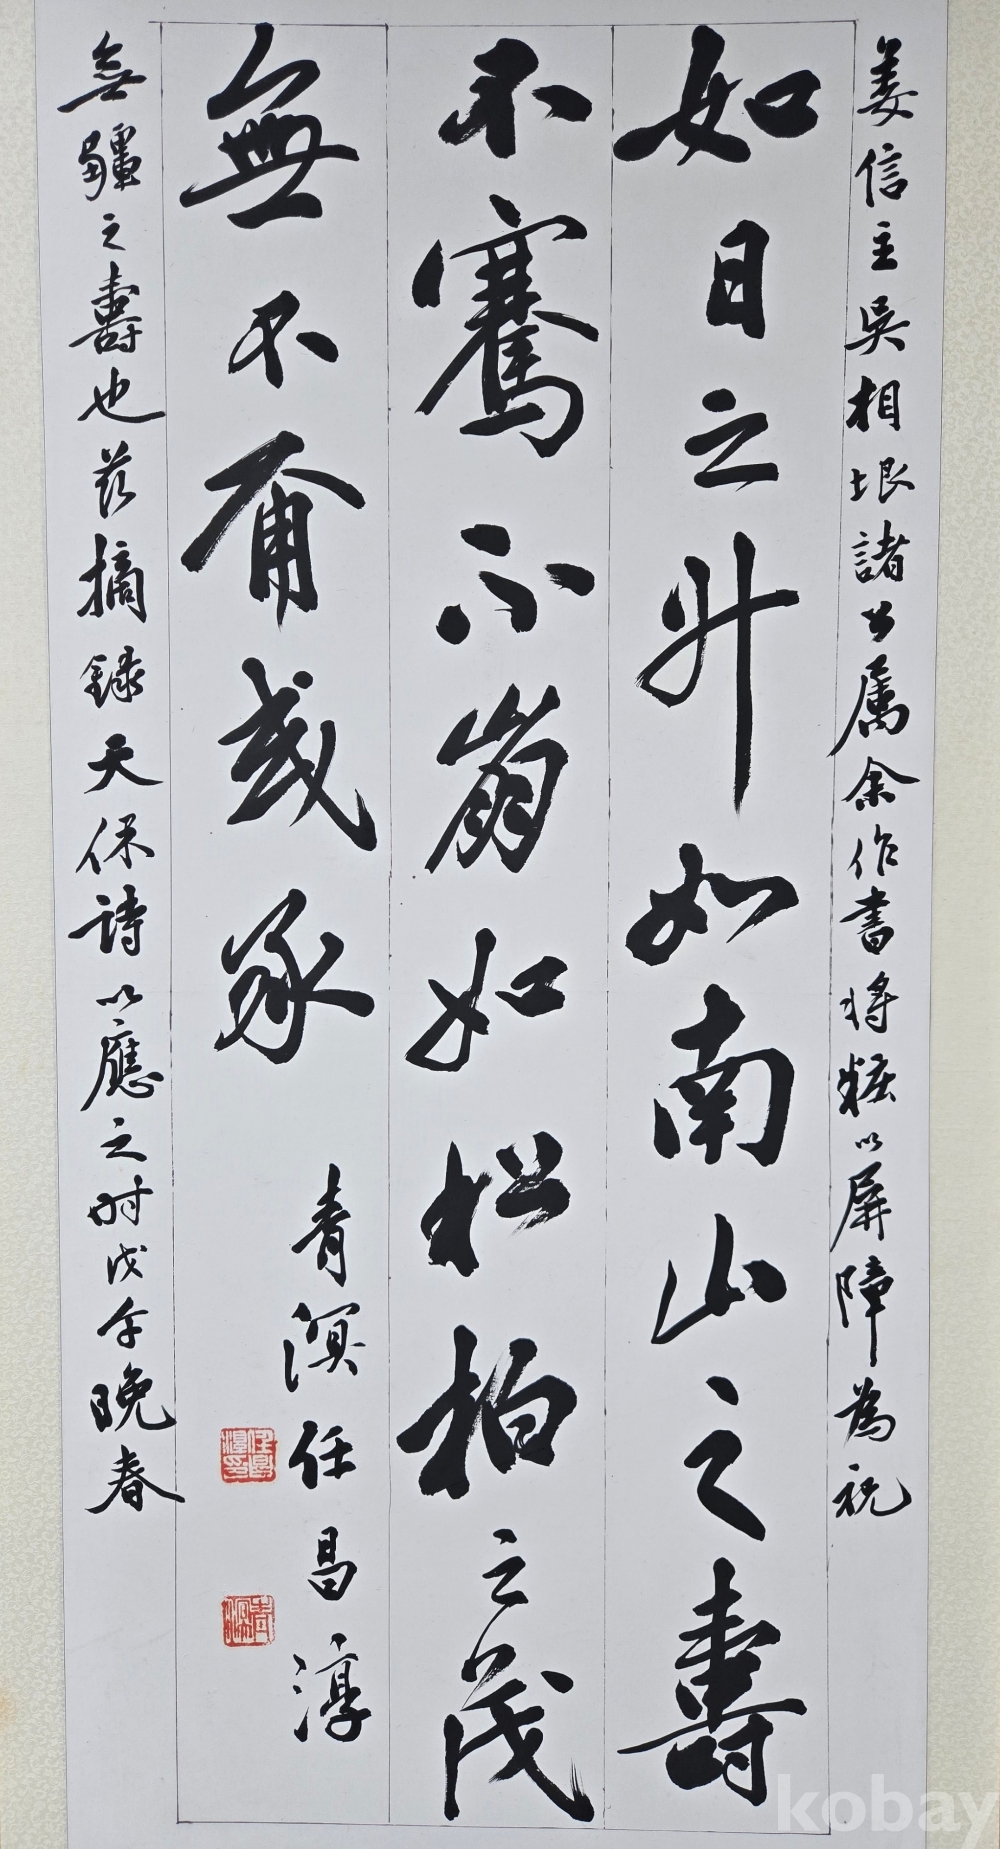 姜信主吳相垠諸公属余作書將粧以屏障為祝
如日之升如南山之壽
不騫不崩如松柏之茂
無不爾或承
青溟任昌淳
無疆之壽也玆摘錄天保詩以應之时戊午晩春
任昌淳印
青溟
kobay